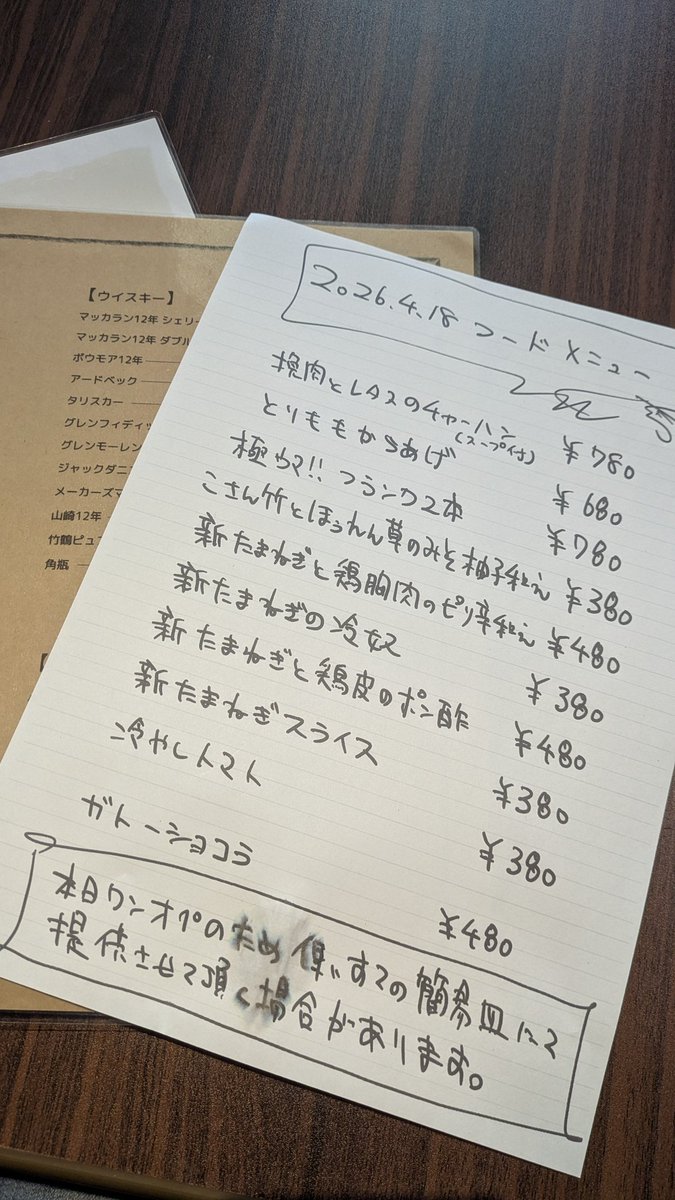 【ウイスキー】
マッカラン12年 シェリ
マッカラン12年 ダブル
ボウモア12年
アードベック
タリスカー
グレンフィディッ
グレンモーレン
ジャックダニ
メーカーズマ
山崎12年
竹鶴ピュ
角瓶
2026.4.18 フードメニュー
挽肉とレタスのチャーハン(スープ付) ¥780
とりももからあげ ¥680
極ウマ!!フランク2本 ¥780
こさん竹とほうれん草のみそ柚子和え ¥380
新たまねぎと鶏胸肉のピリ辛和え ¥480
新たまねぎの冷奴 ¥380
新たまねぎと鶏皮のポン酢 ¥480
新たまねぎスライス ¥380
冷やしトマト ¥380
ガトーショコラ ¥480
本日ワンオペのため使いすての簡易皿にて
提供させて頂く場合があります。